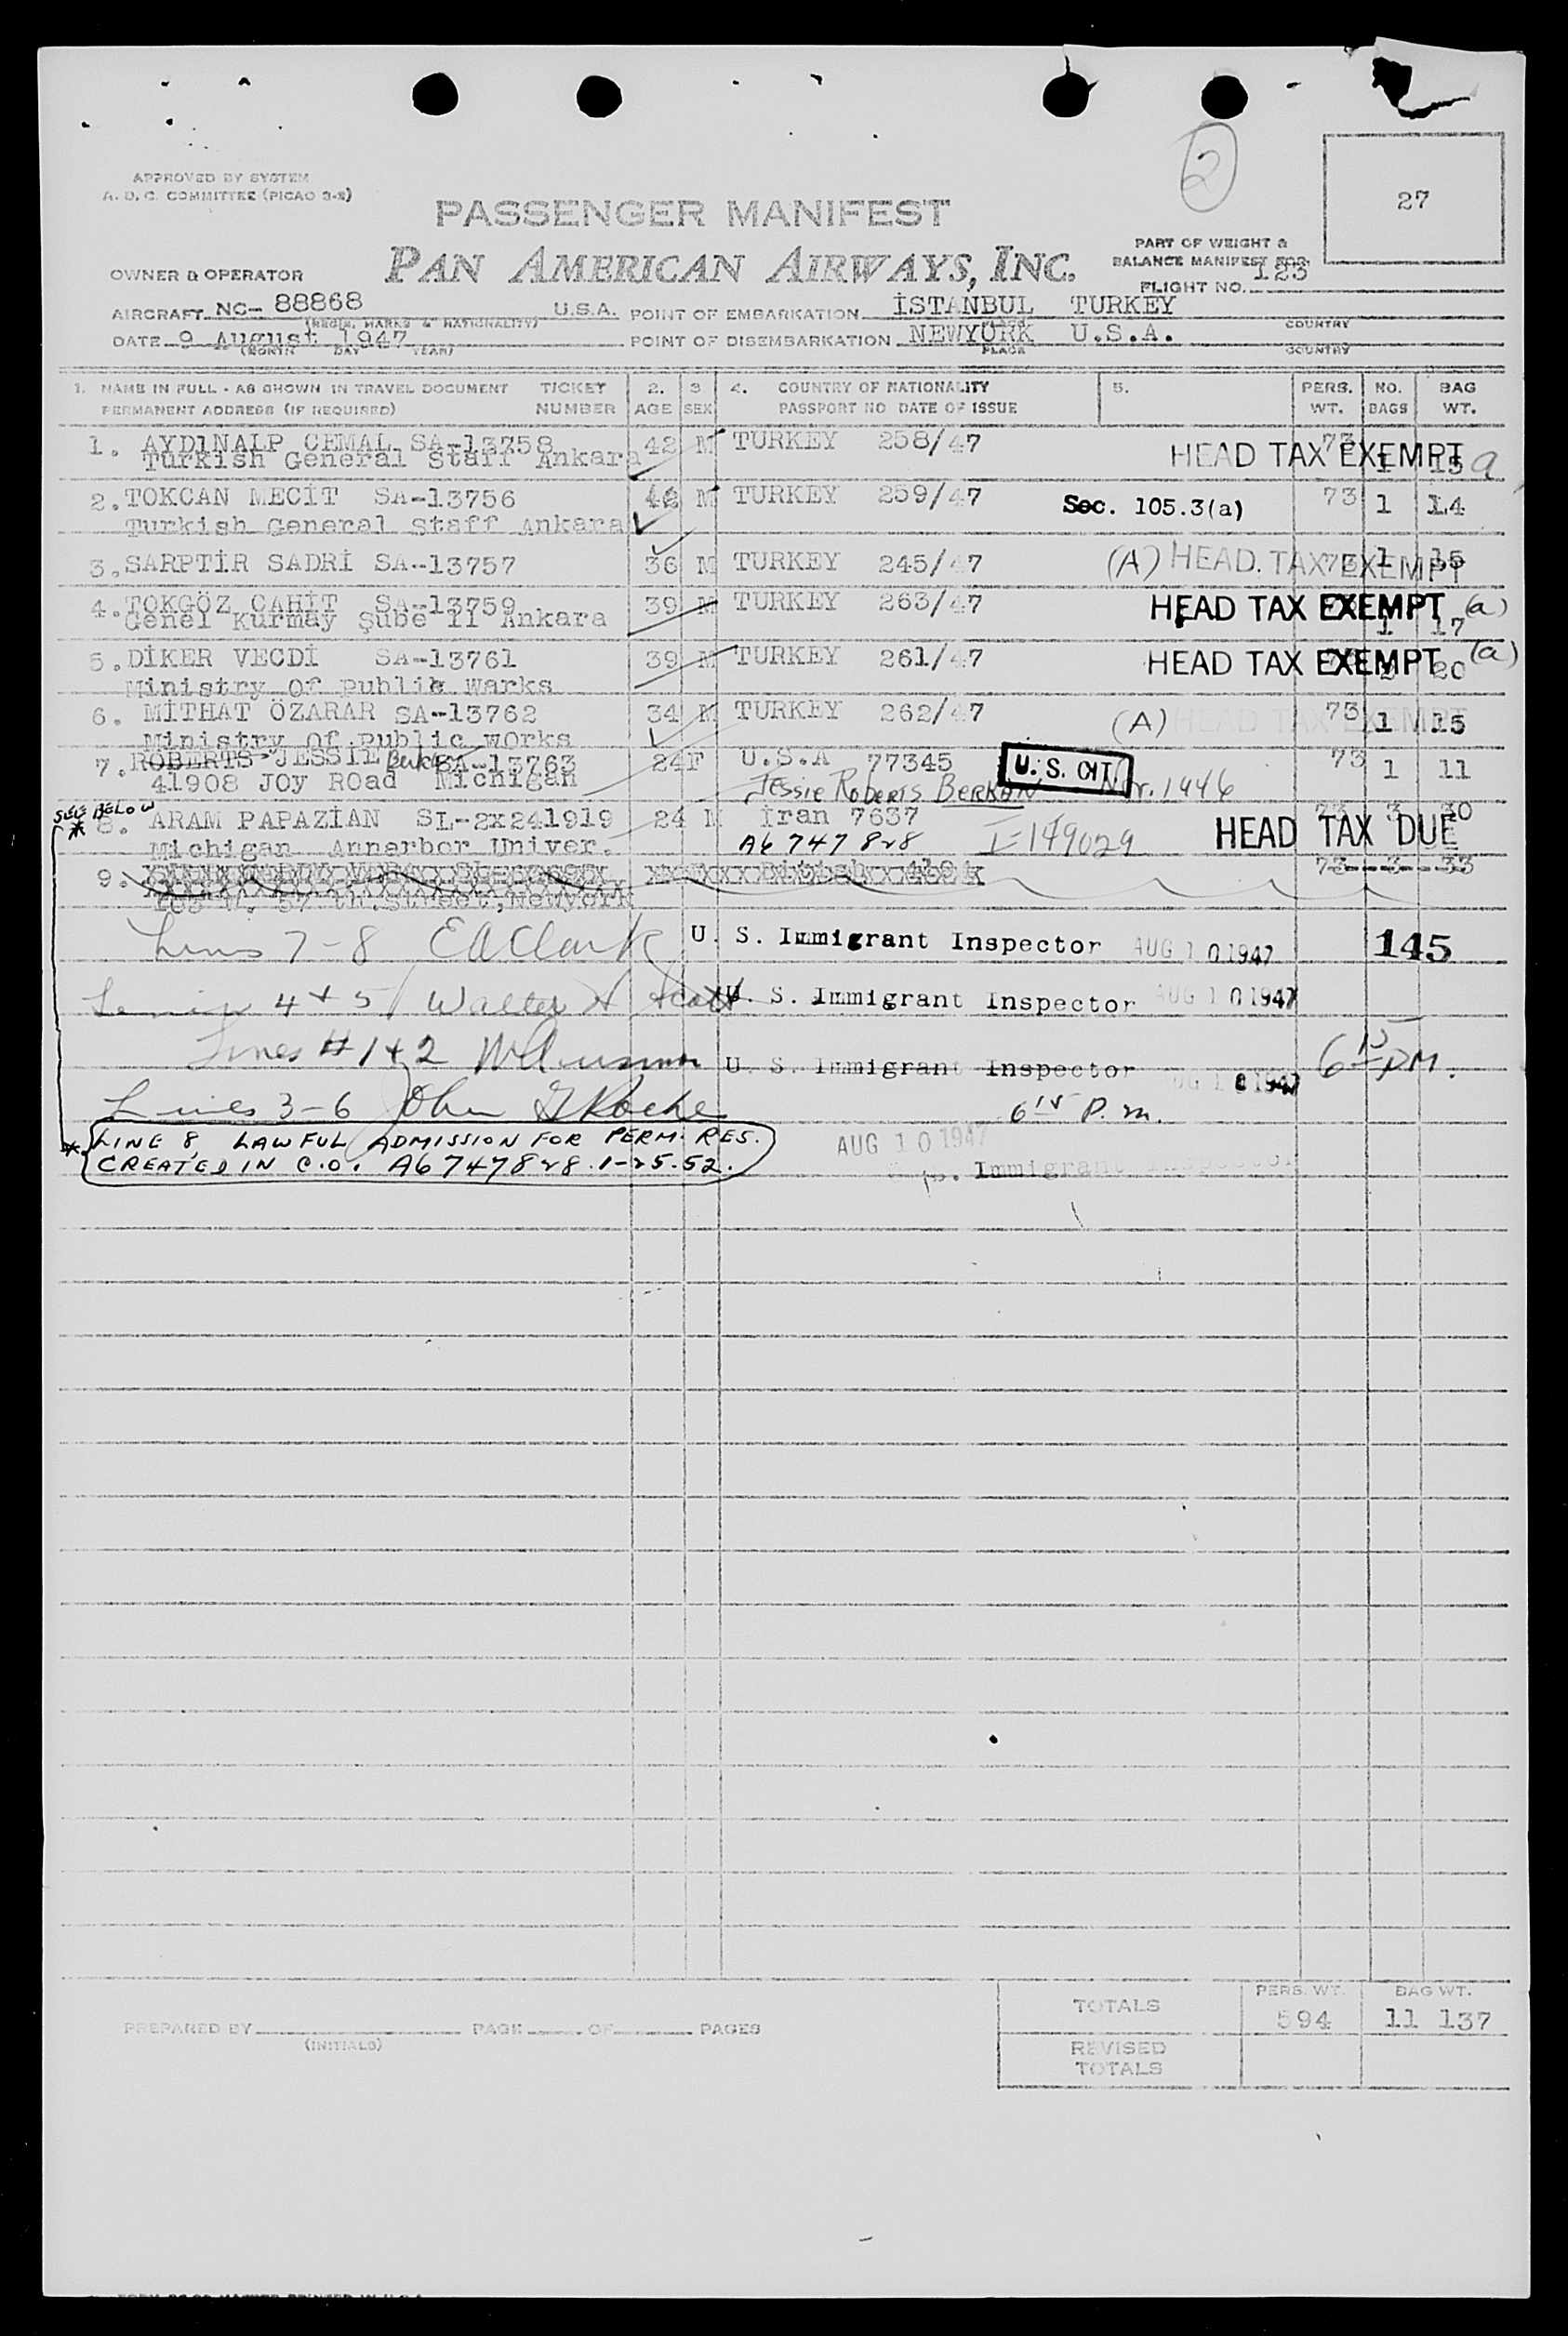 2
27
APPROVED BY SYSTEM
A. D. C. COMMITTEE (PICAO 3-2)
PASSENGER MANIFEST
PAN AMERICAN AIRWAYS, INC.
PART OF WEIGHT &
BALANCE MANIFEST FOR
FLIGHT NO. 123
OWNER & OPERATOR
AIRCRAFT NC- 88868 U.S.A. POINT OF EMBARKATION İSTANBUL TURKEY
(REGIS. MARKS & NATIONALITY) COUNTRY
DATE 9 August 1947 POINT OF DISEMBARKATION NEWYORK U.S.A.
(MONTH DAY YEAR) PLACE COUNTRY
1. NAME IN FULL - AS SHOWN IN TRAVEL DOCUMENT TICKET 2. 3 4. COUNTRY OF NATIONALITY 5. PERS. NO. BAG
PERMANENT ADDRESS (IF REQUIRED) NUMBER AGE SEX PASSPORT NO DATE OF ISSUE WT. BAGS WT.
1. AYDINALP CEMAL SA-13758 42 M TURKEY 258/47 HEAD TAX EXEMPT 73 1 15 a
Turkish General Staff Ankara
2. TOKCAN MECİT SA-13756 42 M TURKEY 259/47 Sec. 105.3(a) 73 1 14
Turkish General Staff Ankara
3. SARPTİR SADRİ SA-13757 36 M TURKEY 245/47 (A) HEAD TAX EXEMPT 73 1 15
4. TOKGÖZ CAHİT SA-13759 39 M TURKEY 263/47 HEAD TAX EXEMPT (a) 1 17
Genel Kurmay Şube II Ankara
5. DİKER VECDİ SA-13761 39 M TURKEY 261/47 HEAD TAX EXEMPT (a) 20
Ministry Of Public Warks
6. MİTHAT ÖZARAR SA-13762 34 M TURKEY 262/47 (A) HEAD TAX EXEMPT 73 1 15
Ministry Of Public WOrks
7. ROBERTS JESSIE SA-13763 24 F U.S.A 77345 U. S. CIT 73 1 11
41908 JOy ROad Michigan Jessie Roberts BERKAN Nov. 1946
SEE BELOW
* 8. ARAM PAPAZİAN SL-2x241919 24 M İran 7637 HEAD TAX DUE 73 3 30
Michigan Annarbor Univer. A6 747 828 I-149029
9. 73 3 33
W. 57 th.Street,Newyork
Lines 7-8 EAClark U. S. Immigrant Inspector AUG 10 1947 145
Lines 4 + 5 Walter A Scott U. S. Immigrant Inspector AUG 10 1947
Lines # 1 + 2 U. S. Immigrant Inspector 1947 6 15 PM.
Lines 3-6 John G Roche 6 15 P.m.
* LINE 8, LAWFUL ADMISSION FOR PERM. RES. AUG 10 1947
CREATED IN C.O. A6 747 828 1-25-52. Immigrant Inspector
TOTALS PERS. WT. BAG WT.
594 11 137
PREPARED BY PAGE OF PAGES
(INITIALS)
REVISED
TOTALS